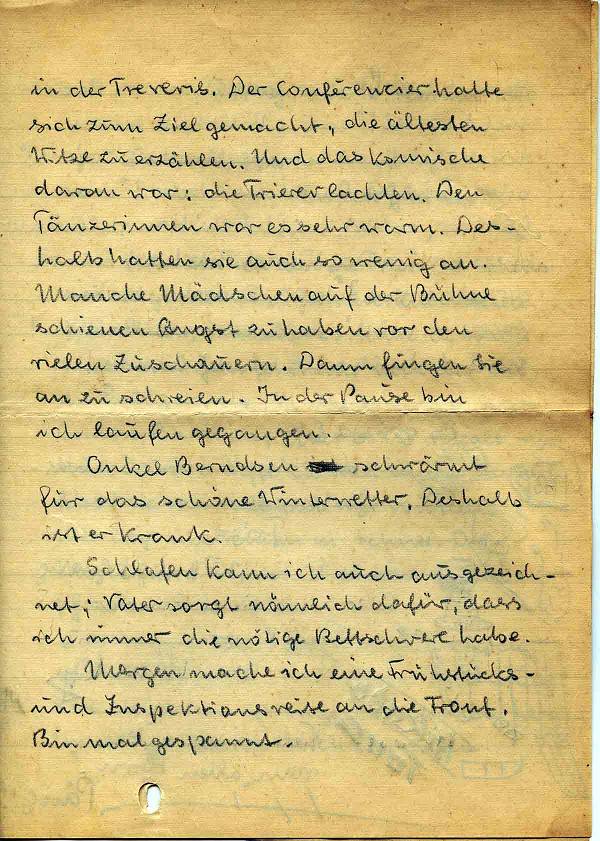 in der Treveris. Der Conférencier hatte
sich zum Ziel gemacht, die ältesten
Witze zu erzählen. Und das komische
daran war: die Trierer lachten. Den
Tänzerinnen war es sehr warm. Des-
halb hatten sie auch so wenig an.
Manche Mädschen auf der Bühne
schienen Angst zu haben vor den
vielen Zuschauern. Dann fingen sie
an zu schreien. In der Pause bin
ich laufen gegangen.
Onkel Berndsen schwärmt
für das schöne Winterwetter. Deshalb
ist er krank.
Schlafen kann ich auch ausgezeich-
net; Vater sorgt nämlich dafür, dass
ich immer die nötige Bettschwere habe.
Morgen mache ich eine Frühstücks-
und Inspektionsreise an die Front.
Bin mal gespannt.